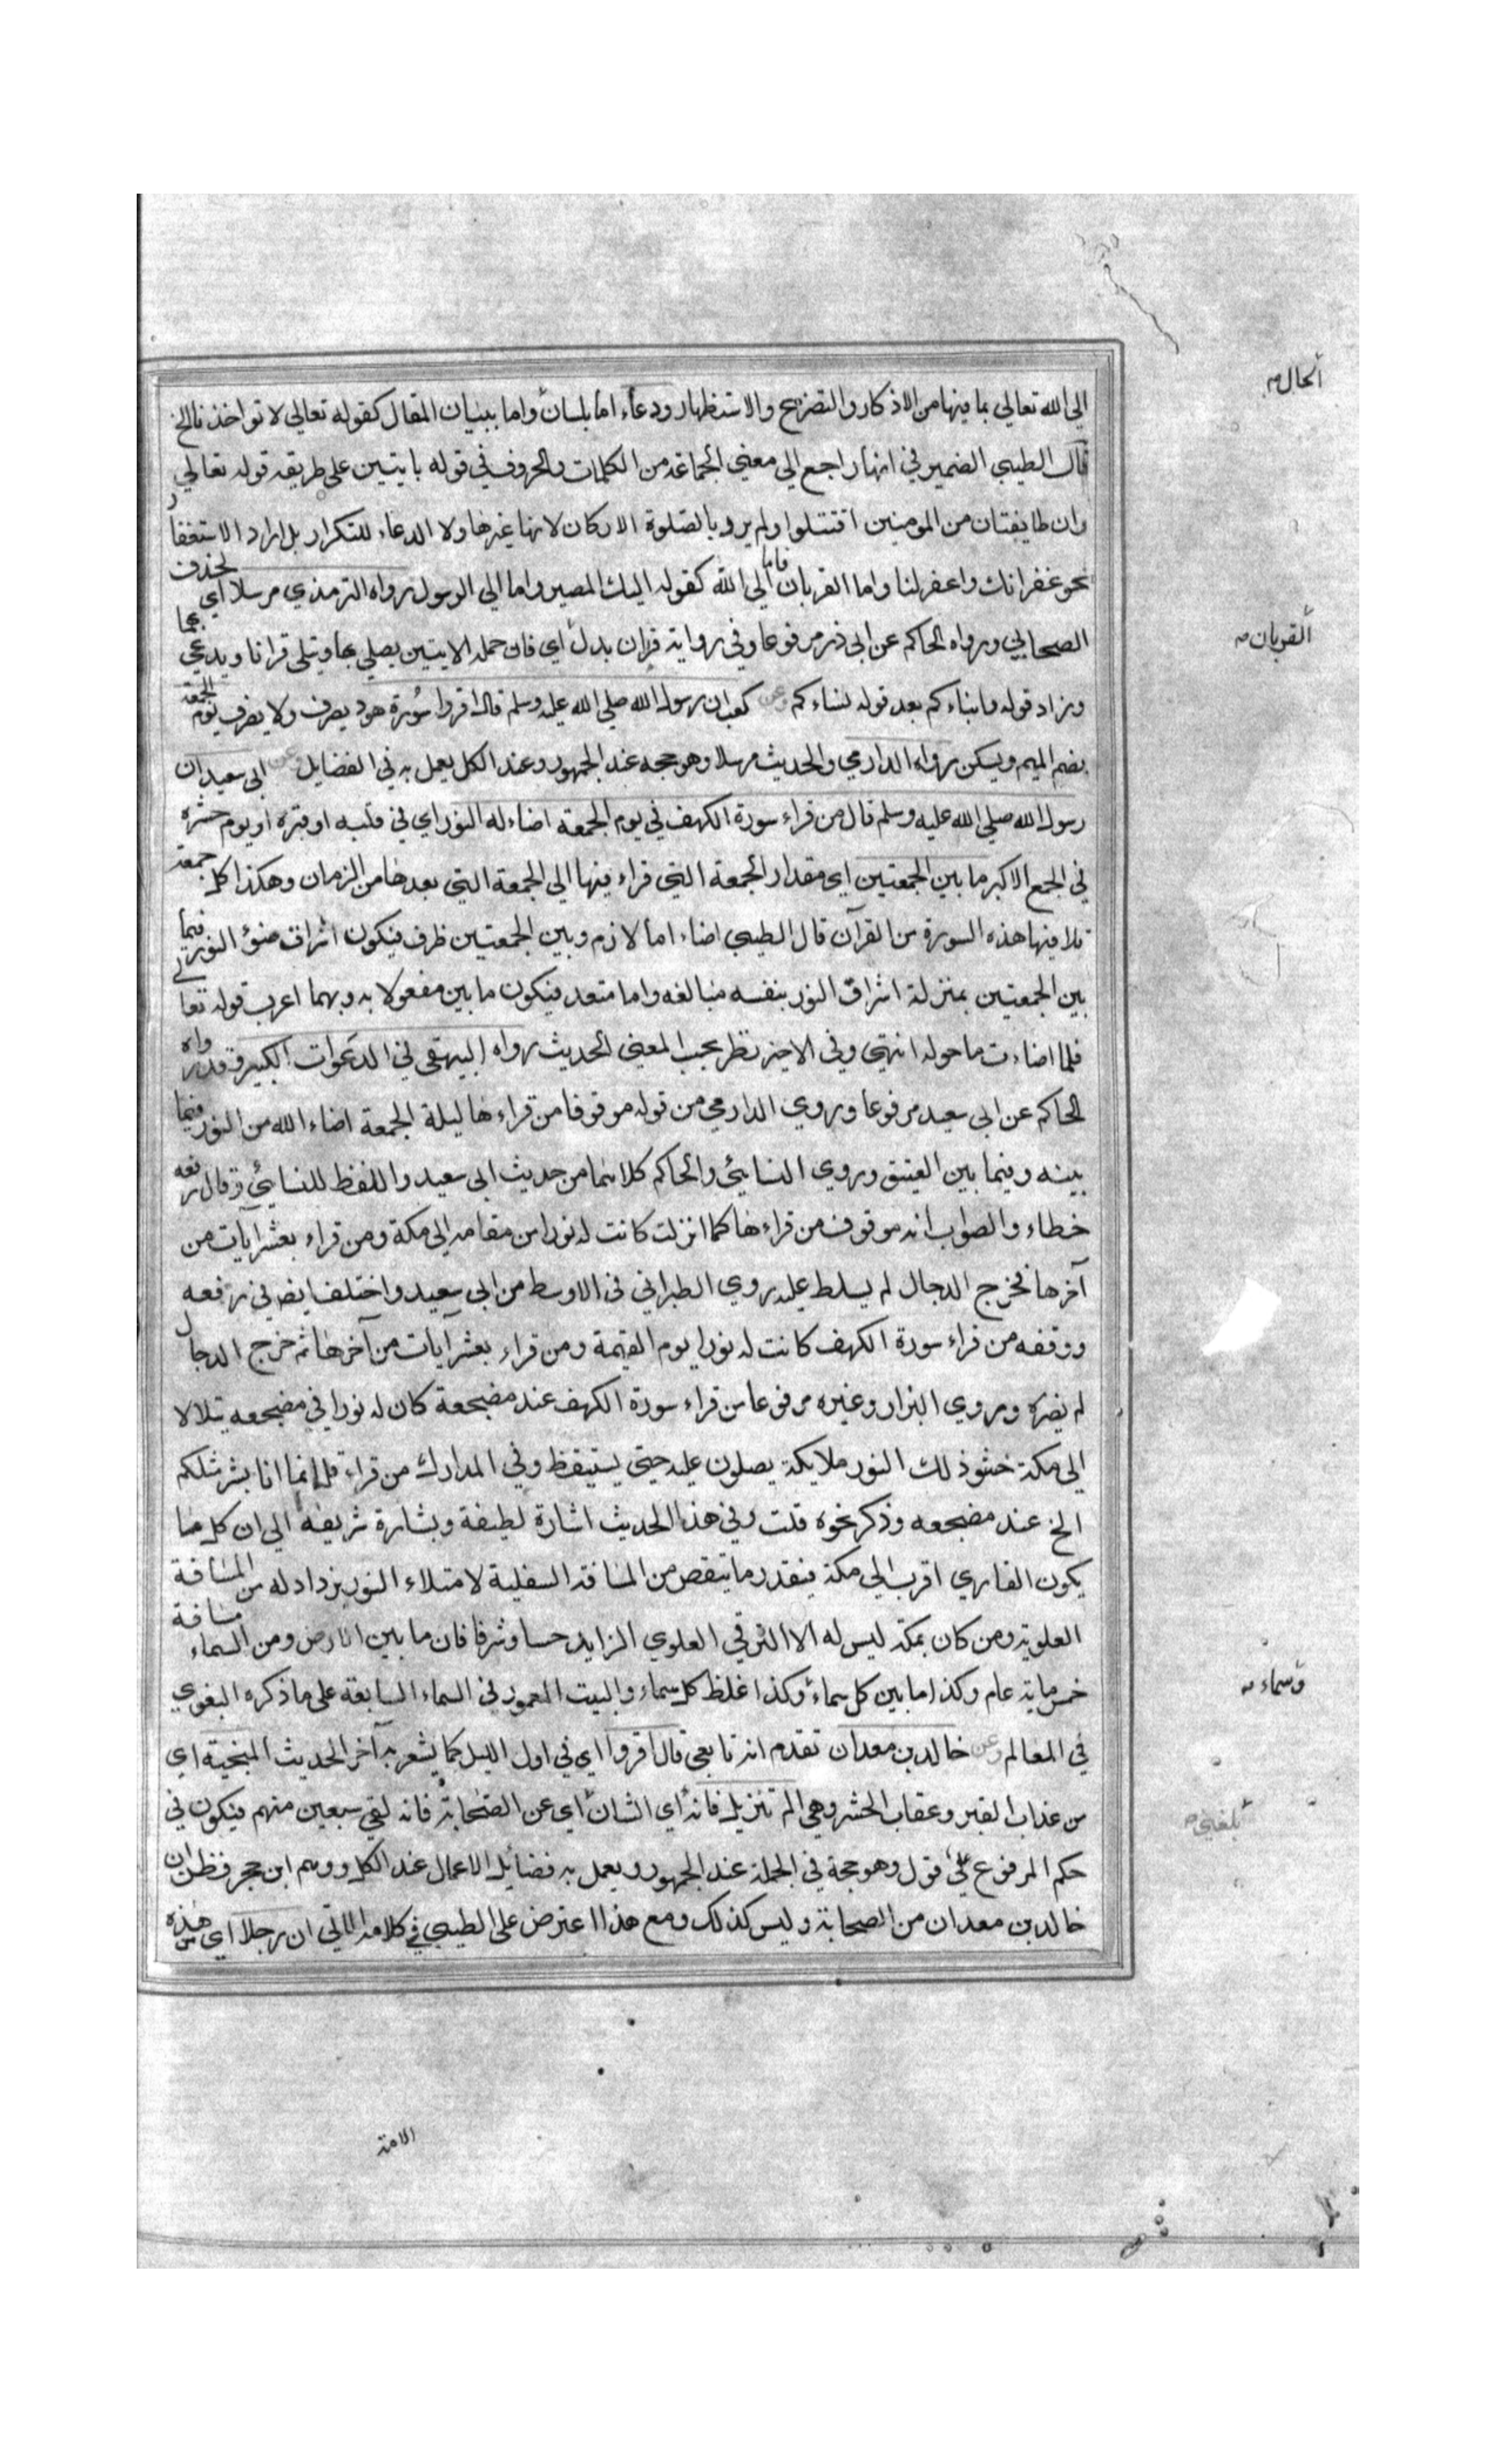 الى الله تعالي بما فيها من الاذكار والتضرع والاستظهار ودعاء اما بلسان واما ببنيان المقال كقوله تعالي لا تواخذنا الخ
قال الطيبي الضمير في انها راجع الي معني الجماعة من الكلمات والحروف في قوله بايتين على طريقة قوله تعالي
وان طايفتان من المومنين اقتتلوا ولم يرو بالصلوة الاركان لانها غيرها ولا الدعاء للتكرار بل اراد الاستغفار
نحو غفرانك واغفرلنا واما القربان فاما الي الله كقوله اليك المصير واما الي الرسول رواه الترمذي مرسلا اي بحذف
الصحابي ورواه الحاكم عن ابي ذر مرفوعا وفي رواية قران بدل اي فان جملة الايتين يصلي بها وتتلى قرانا ويدعي بهما
وزاد قوله وابناءكم بعد قوله نساءكم وعن كعب ان رسول الله صلي الله عليه وسلم قال اقروا سورة هود يصرف ولا يصرف يوم الجمعة
بضم الميم ويسكن رواه الدارمي والحديث مرسلا وهو حجة عند الجمهور وعند الكل يعمل به في الفضايل وعن ابي سعيد ان
رسول الله صلي الله عليه وسلم قال من قراء سورة الكهف في يوم الجمعة اضاء له النور اي في قلبه او قبره او يوم حشره
في الجمع الاكبر ما بين الجمعتين اي مقدار الجمعة التي قراء فيها الي الجمعة التي بعدها من الزمان وهكذا كل جمعة
تلا فيها هذه السورة من القرآن قال الطيبي اضاء اما لازم وبين الجمعتين ظرف فيكون اشراق ضوء النور فيما
بين الجمعتين بمنزلة اشراق النور بنفسه مبالغة واما متعد فيكون ما بين مفعولا به وبهما اعرب قوله تعالي
فلما اضاءت ما حوله انتهي وفي الاخير نظر بحسب المعني الحديث رواه البيهقي في الدعوات الكبير وقد رواه
الحاكم عن ابي سعيد مرفوعا وروي الدارمي من قوله موقوفا من قراءها ليلة الجمعة اضاء الله من النور فيما
بينه وفيما بين العتيق وروي النسايئ والحاكم كلاهما من حديث ابي سعيد واللفظ للنسايئ وقال رفعه
خطاء والصواب انه موقوف من قراءها كما انزلت كانت له نورا من مقامه الي مكة ومن قراء بعشر ايات من
آخرها فخرج الدجال لم يسلط عليه روي الطبراني في الاوسط من ابي سعيد واختلف ايضا في رفعه
ووقفه من قراء سورة الكهف كانت له نورا يوم القيمة ومن قراء بعشر آيات من آخرها ثم خرج الدجال
لم يضره وروي البزار وغيره مرفوعا من قراء سورة الكهف عند مضجعة كان له نورا في مضجعه يتلالا
الي مكة حشو ذلك النور ملايكة يصلون عليه حتي يستيقظ وفي المدارك من قراء قل انما انا بشر مثلكم
الخ عند مضجعه وذكر نحوه قلت وفي هذا الحديث اشارة لطيفة وبشارة شريفة الي ان كل ما
يكون القاري اقرب الي مكة فبقدر ما ينقص من المسافة السفلية لامتلاء النور يزداد له من المسافة
العلوية ومن كان بمكة ليس له الا الترقي العلوي الزايد حسا وشرفا فان ما بين الارض ومن السماء مسافة
خمس ماية عام وكذا ما بين كل سماء وكذا غلظ كل سماء والبيت المعمور في السماء السابعة على ما ذكره البغوي
في المعالم وعن خالد بن معدان تقدم انه تابعي قال اقروا اي في اول الليل كما يشعر به آخر الحديث المنجية اي
من عذاب القبر وعقاب الحشر وهي الم تنزيل فانه اي الشان اي عن الصحابة فانه لقي سبعين منهم فيكون في
حكم المرفوع علي قول وهو حجة في الجملة عند الجمهور ويعمل به فضايل الاعمال عند الكل ووهم ابن حجر فظن ان
خالد بن معدان من الصحابة وليس كذلك ومع هذا اعترض على الطيبي في كلامه الاتي ان رجلا اي من هذه
الحال صح
القربان صح
وسماء صح
بلغني صح
الامة